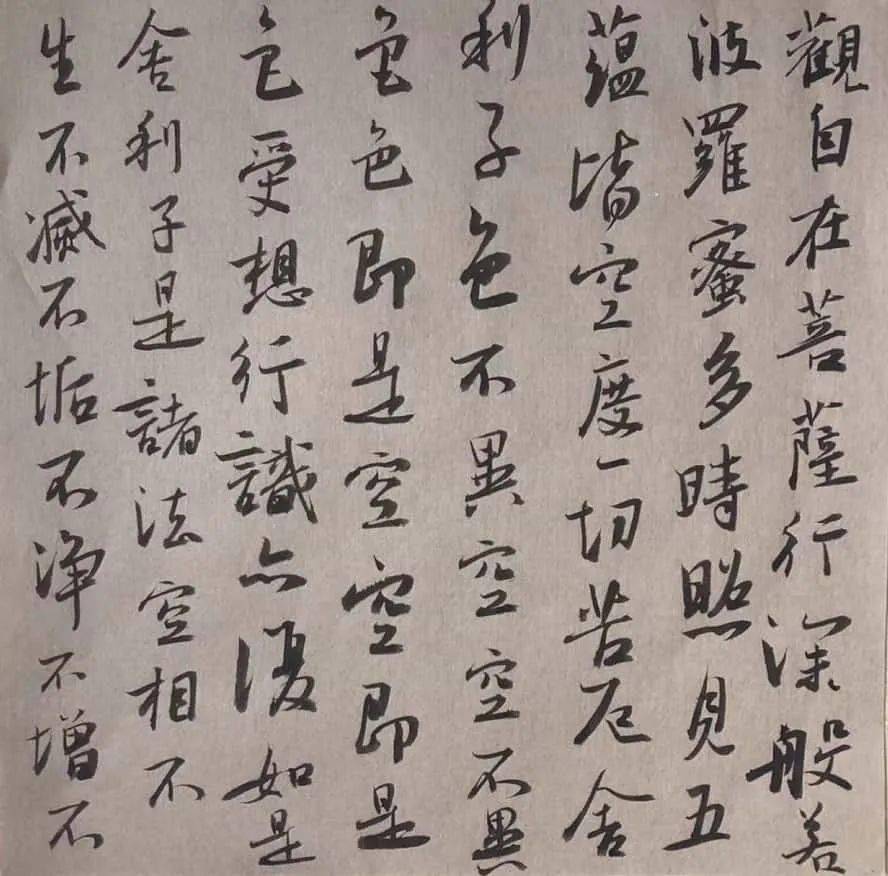 觀自在菩薩行深般若
波羅蜜多時照見五
蘊皆空度一切苦厄舍
利子色不異空空不異
色色即是空空即是
色受想行識亦復如是
舍利子是諸法空相不
生不滅不垢不淨不增不